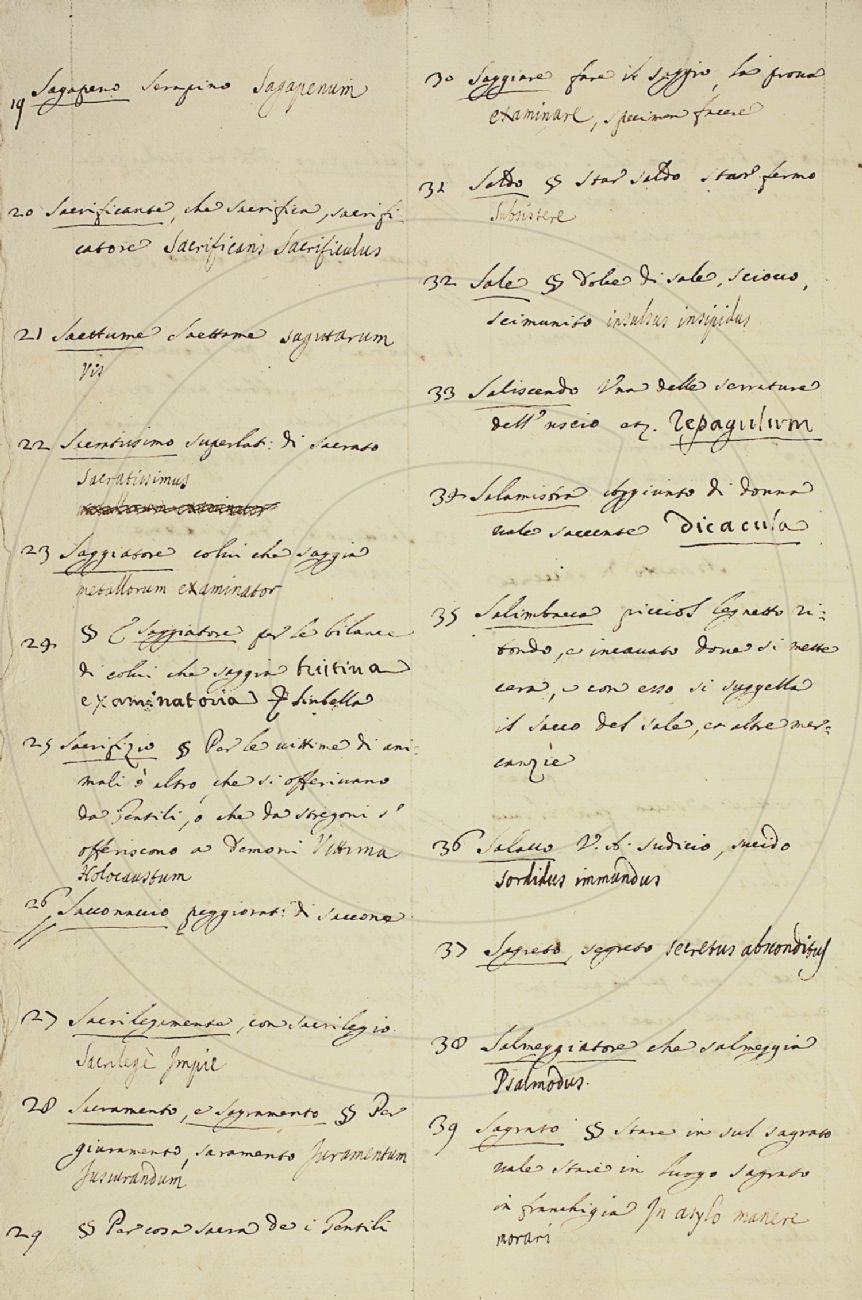 19 Sagapeno Serapino Sagapenum
20 Sacrificante, che sacrifica, sacrifi-
catore Sacrificans Sacrificulus
21 Saettume Saettame sagittarum
vis
22 superlat: di sacrato
Sacratissimus
23 Saggiatore colui che saggia
metallorum examinator
24. § Saggiatore per le bilance
di colui che saggia trutina
examinatoria
25 Sacrifizio § Per le vittime di ani-
mali o altro, che si offerivano
da Gentili, o che da stregoni s'
offeriscono a Demoni Vittima
Holocaustum
26 Sacconaccio peggiorat: di saccone
27 Sacrilegamente, con sacrilegio.
Sacrilegè Impie
28 Sacramento, e Sagramento § Per
giuramento, saramento Juramentum
Jusiurandum
29 § Per cosa sacra de i Gentili
30 Saggiare fare il saggio, la prova
examinare, specimen facere
31 Saldo § Star saldo star fermo
Subsistere
32 Sale § Dolce di sale, sciocco,
scimunito insulsus insipidus
33 Saliscendo Una delle serrature
dell' uscio etc. repagulum
34 Salamistra Aggiunto di donna
vale saccente Dicacula
35 Salimbacca picciol legnetto ri-
tondo, e incavato dove si mette
cera, e con esso si suggella
il sacco del sale, ed altre mer-
canzie
36 Salavo V. A. sudicio, sucido
sordidus immundus
37 Sagreto, segreto secretus absconditus
38 Salmeggiatore che salmeggia
Psalmodus.
39 Sagrato § Stare in sul sagrato
vale stare in luogo sagrato
in franchigia In asylo manere
morari